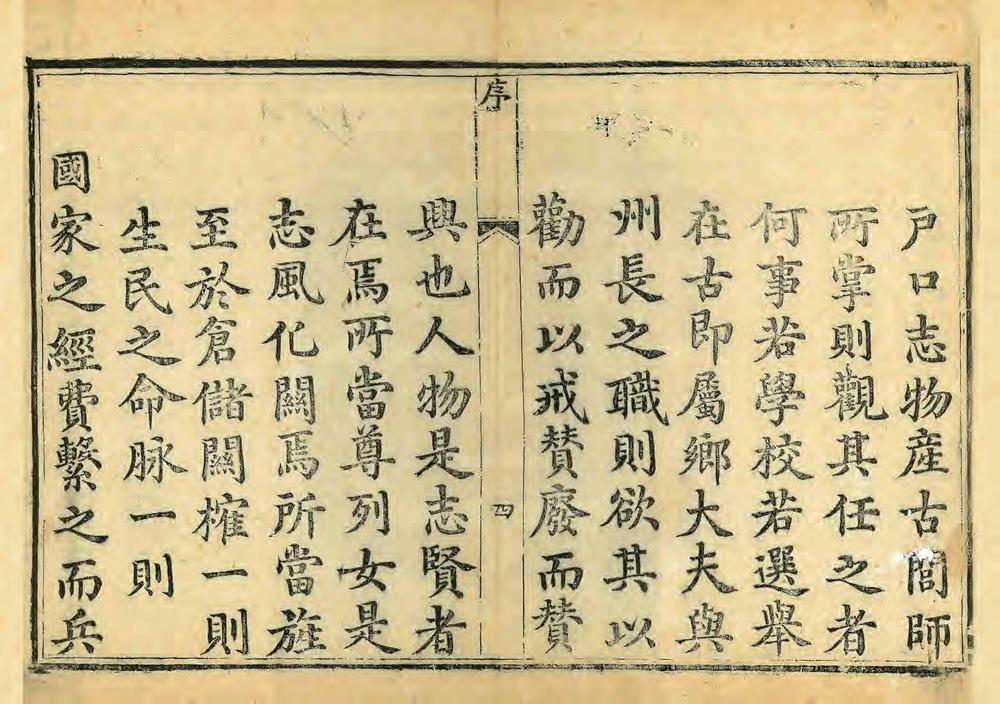 戶口志物産古閭師
所掌則觀其任之者
何事若學校若選舉
在古即屬鄉大夫與
州長之職則欲其以
勸而以戒贊廢而贊
序
四
興也人物是志賢者
在焉所當尊列女是
志風化關焉所當旌
至於倉儲關榷一則
生民之命脉一則
國家之經費繫之而兵